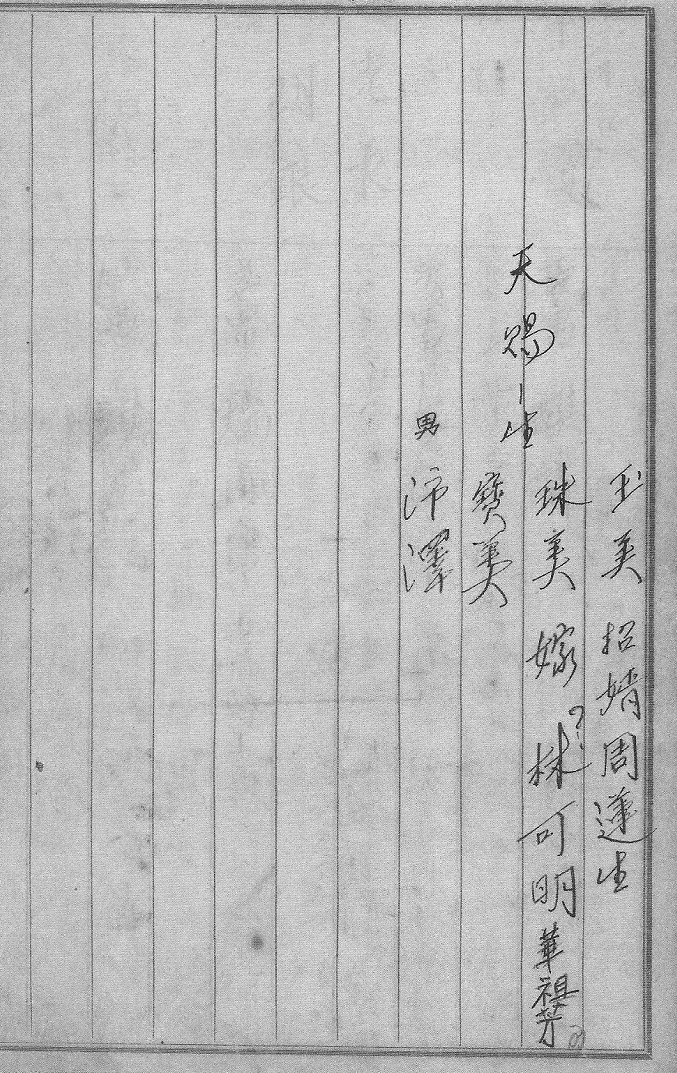 玉美 招婿周蓮生
珠美 嫁 林可明 ? 華祖芳
天賜-生
寶美
男 沛澤